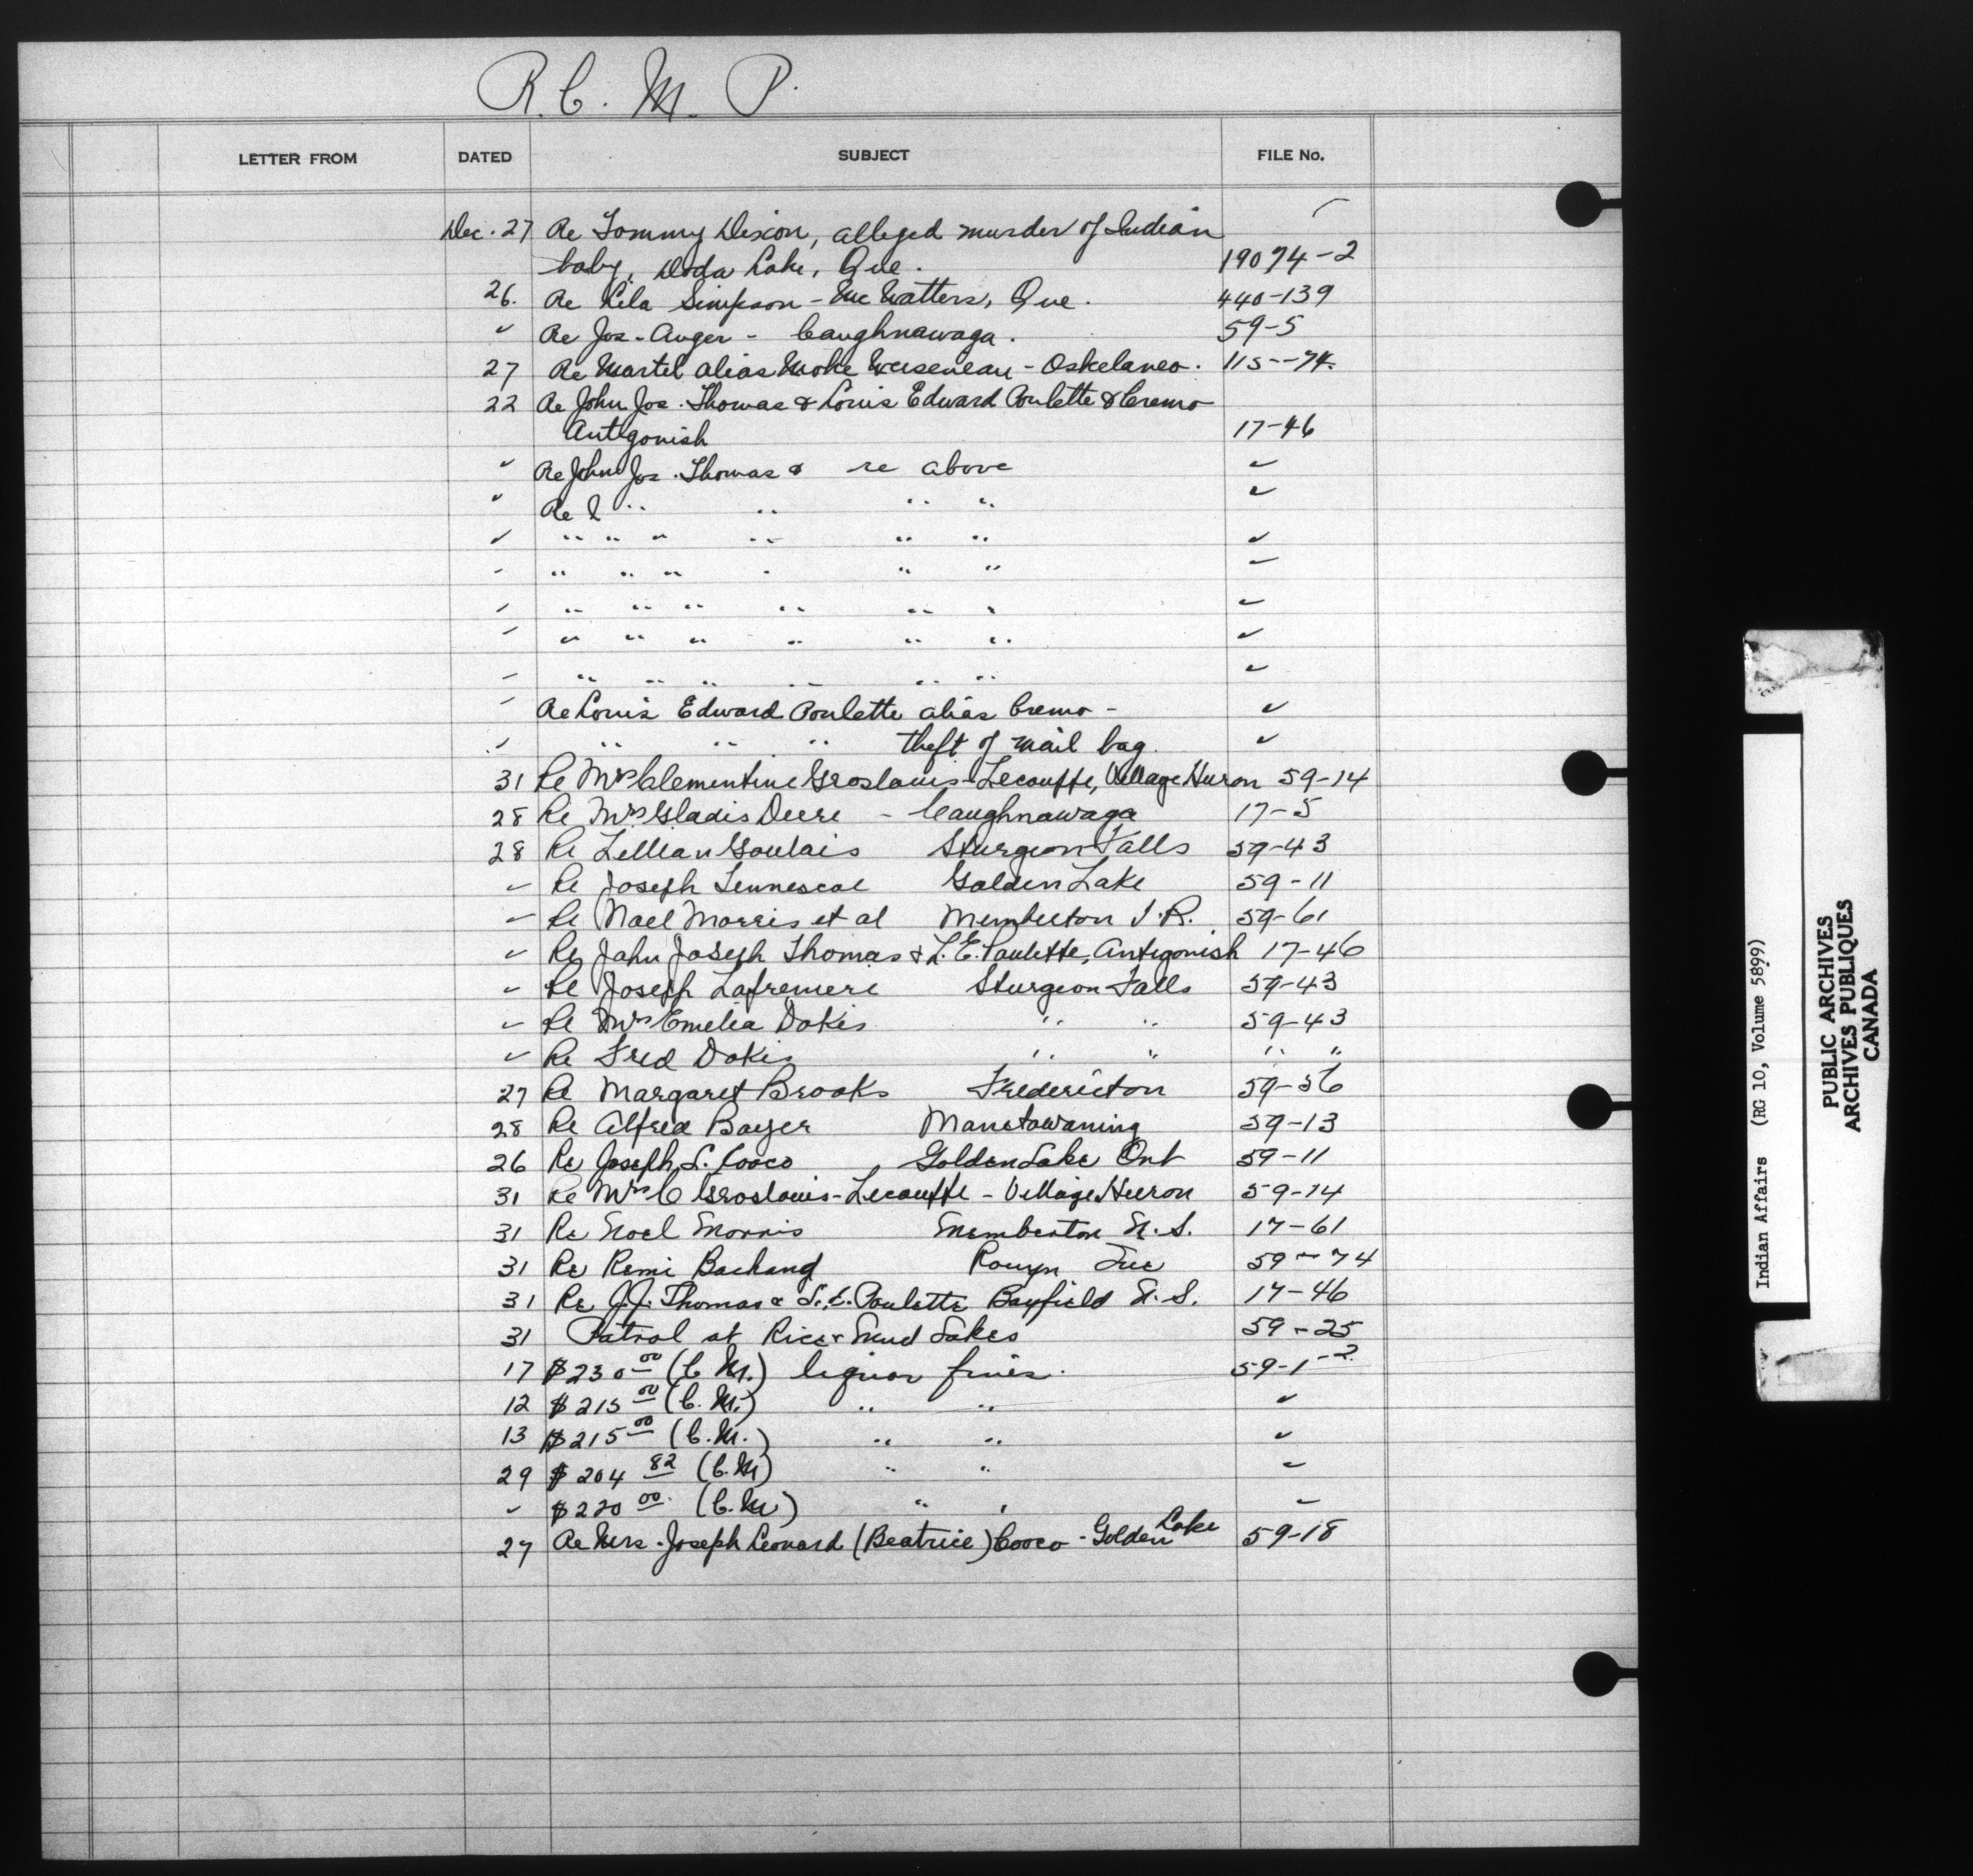 R. C. M. P.
LETTER FROM DATED SUBJECT FILE No.
Dec. 27 Re Tommy Dixon, alleged murder of Indian
baby, Doda Lake, Que. 19074-2
26. Re Lila Simpson - McWatters, Que. 440-139
" Re Jos. Auger - Caughnawaga. 59-5
27 Re Martel alias Moke - Oskelaneo. 115--74
22 Re John Jos. Thomas & Louis Edward Poulette & Cremo
Antigonish 17-46
" Re John Jos. Thomas & re above "
" Re 2 " " " " "
" " " " " " " "
" " " " " " " "
" " " " " " " "
" " " " " " " "
" " " " " " " "
" Re Louis Edward Poulette alias Cremo - "
" " " " theft of mail bag. "
31 Re Mrs Clementine Groslouis-Lecouffe, Village Huron 59-14
28 Re Mrs Gladis Deere - Caughnawaga 17-5
28 Re Lillian Goulais Sturgeon Falls 59-43
" Re Joseph Tennescoe Golden Lake 59-11
" Re Noel Morris et al Memberton I.R. 59-61
" Re John Joseph Thomas & L.E. Paulette, Antigonish 17-46
" Re Joseph Lafreniere Sturgeon Falls 59-43
" Re Mrs Emelia Dokis " " 59-43
" Re Fred Dokis " " " "
27 Re Margaret Brooks Fredericton 59-56
28 Re Alfred Boyer Manitowaning 59-13
26 Re Joseph L. Cooco Golden Lake Ont 59-11
31 Re Mrs C Groslouis-Lecouffe - Village Huron 59-14
31 Re Noel Morris Memberton N.S. 17-61
31 Re Remi Bachand Rouyn Que 59-74
31 Re J.J. Thomas & L.E. Poulette Bayfield N.S. 17-46
31 Patrol at Rice & Mud Lakes 59-25
17 $230 00 (C.M.) liquor fines. 59-1-2
12 $215 00 (C.M.) " " "
13 $215 00 (C.M.) " " "
29 $204 82 (C.M) " " "
" $220 00 (C.M) " " "
27 Re Mrs. Joseph Leonard (Beatrice) Cooco - Golden Lake 59-18
Indian Affairs (RG 10, Volume 5899)
PUBLIC ARCHIVES
ARCHIVES PUBLIQUES
CANADA